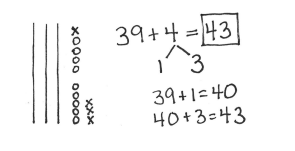 39+4=43
1 3
39+1=40
40+3=43